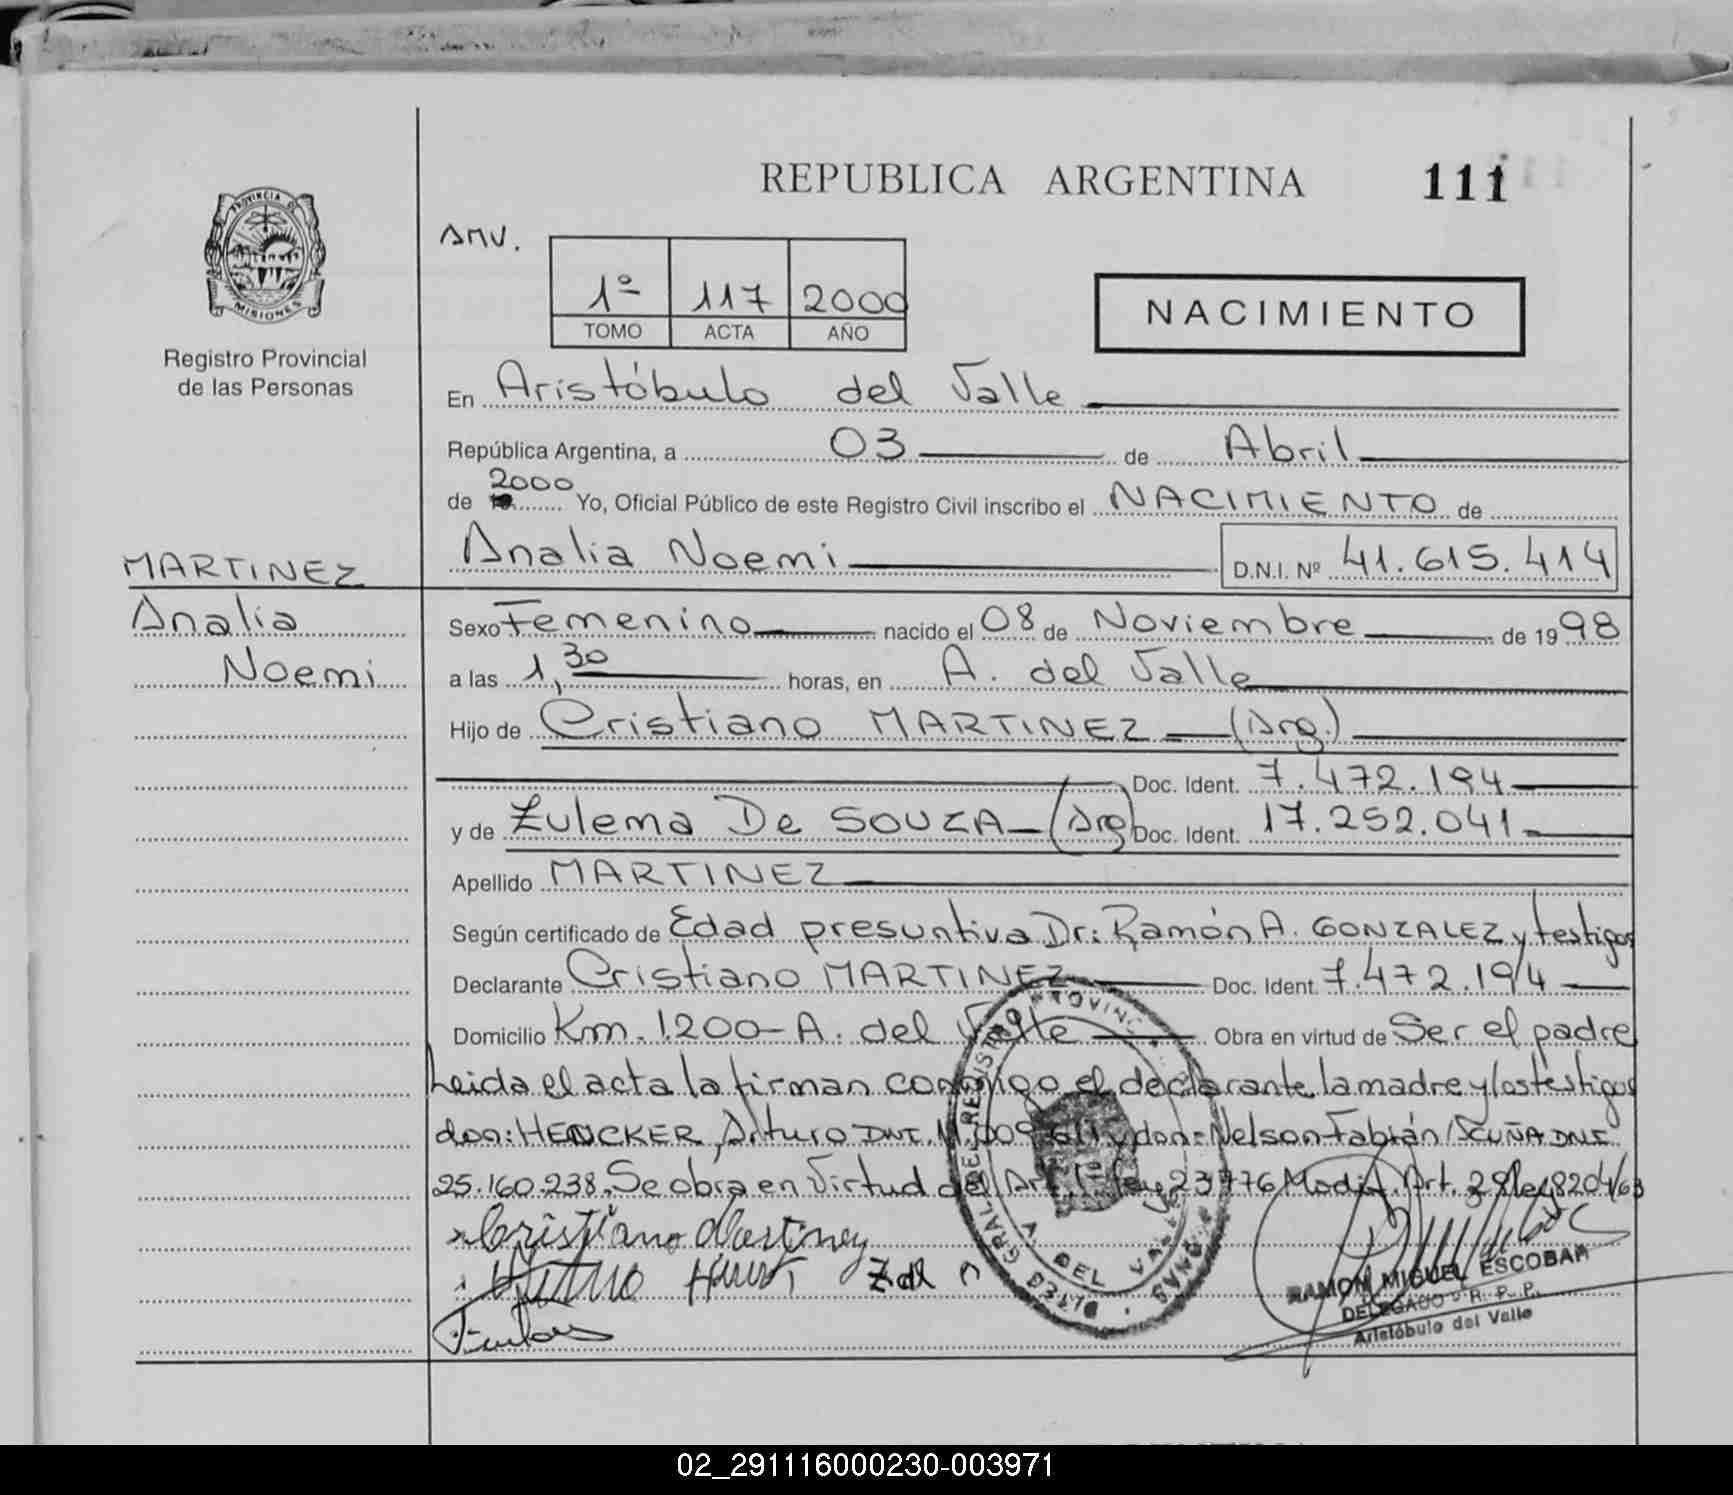 REPUBLICA ARGENTINA 111
PROVINCIA DE
MISIONES
Registro Provincial
de las Personas
AMV.
1º 117 2000
TOMO ACTA AÑO
NACIMIENTO
En Aristóbulo del Valle
República Argentina, a 03 de Abril
de 2000 Yo, Oficial Público de este Registro Civil inscribo el NACIMIENTO de
Analia Noemi D.N.I. Nº 41.615.414
MARTINEZ
Analia
Noemi
Sexo Femenino nacido el 08 de Noviembre de 1998
a las 1,30 horas, en A. del Valle
Hijo de Cristiano MARTINEZ (Arg.)
Doc. Ident. 7.472.194
y de Zulema De SOUZA (Arg) Doc. Ident. 17.252.041
Apellido MARTINEZ
Según certificado de Edad presuntiva Dr: Ramón A. GONZALEZ y testigos
Declarante Cristiano MARTINEZ Doc. Ident. 7.472.194
Domicilio Km. 1.200 - A. del Valle Obra en virtud de Ser el padre
Leida el acta la firman conmigo el declarante la madre y los testigos
don: HENCKER, Arturo DNI. y don: Nelson Fabián ACUÑA DNI.
25.160.238. Se obra en Virtud del Art. 1º Ley 23776 Modif. Art. 29 Ley 8204/63
Cristiano Martinez
Arturo
RAMON MIGUEL ESCOBAR
DELEGADO R. P. P.
Aristóbulo del Valle
02_291116000230-003971